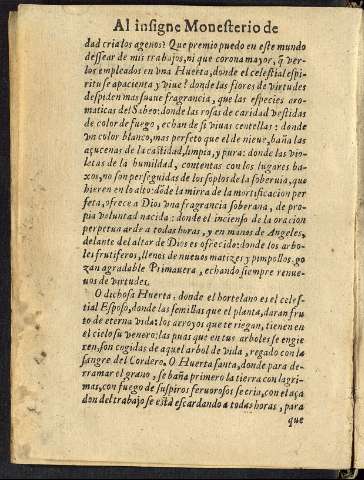 Al insigne Monesterio de
dad cria los agenos? Que premio puedo en este mundo
dessear de mis trabajos, ni que corona mayor, q̃ ver-
los empleados en vna Huerta, donde el celestial espi-
ritu se apacienta y viue? donde las flores de virtudes
despiden mas suaue fragrancia, que las especies aro-
maticas del Sabeo: donde las rosas de caridad vestidas
de color de fuego, echan de si viuas centellas: donde
vn color blanco, mas perfeto que el de nieue, baña las
açucenas de la castidad, limpia, y pura: donde las vio-
letas de la humildad, contentas con los lugares ba-
xos, no son perseguidas de los soplos de la soberuia, que
hieren en lo alto: dõde la mirra de la mortificacion per
feta, ofrece a Dios vna fragrancia soberana, de pro-
pia voluntad nacida: donde el incienso de la oracion
perpetua arde a todas horas, y en manos de Angeles,
delante del altar de Dios es ofrecido: donde los arbo-
les frutiferos, llenos de nueuos matizes y pimpollos, go
zan agradable Primauera, echando siempre renue-
uos de virtudes.
O dichosa Huerta, donde el hortelano es el celes-
tial Esposo, donde las semillas que el planta, daran fru
to de eterna vida: los arroyos que te riegan, tienen en
el cielo su venero: las puas que en tus arboles se engie
ren, son cogidas de aquel arbol de vida, regado con la
sangre del Cordero. O Huerta santa, donde para de-
rramar el grano, se baña primero la tierra con lagri-
mas, con fuego de suspiros feruorosos se cria, con el aça
don del trabajo se està escardando a todas horas, para
que